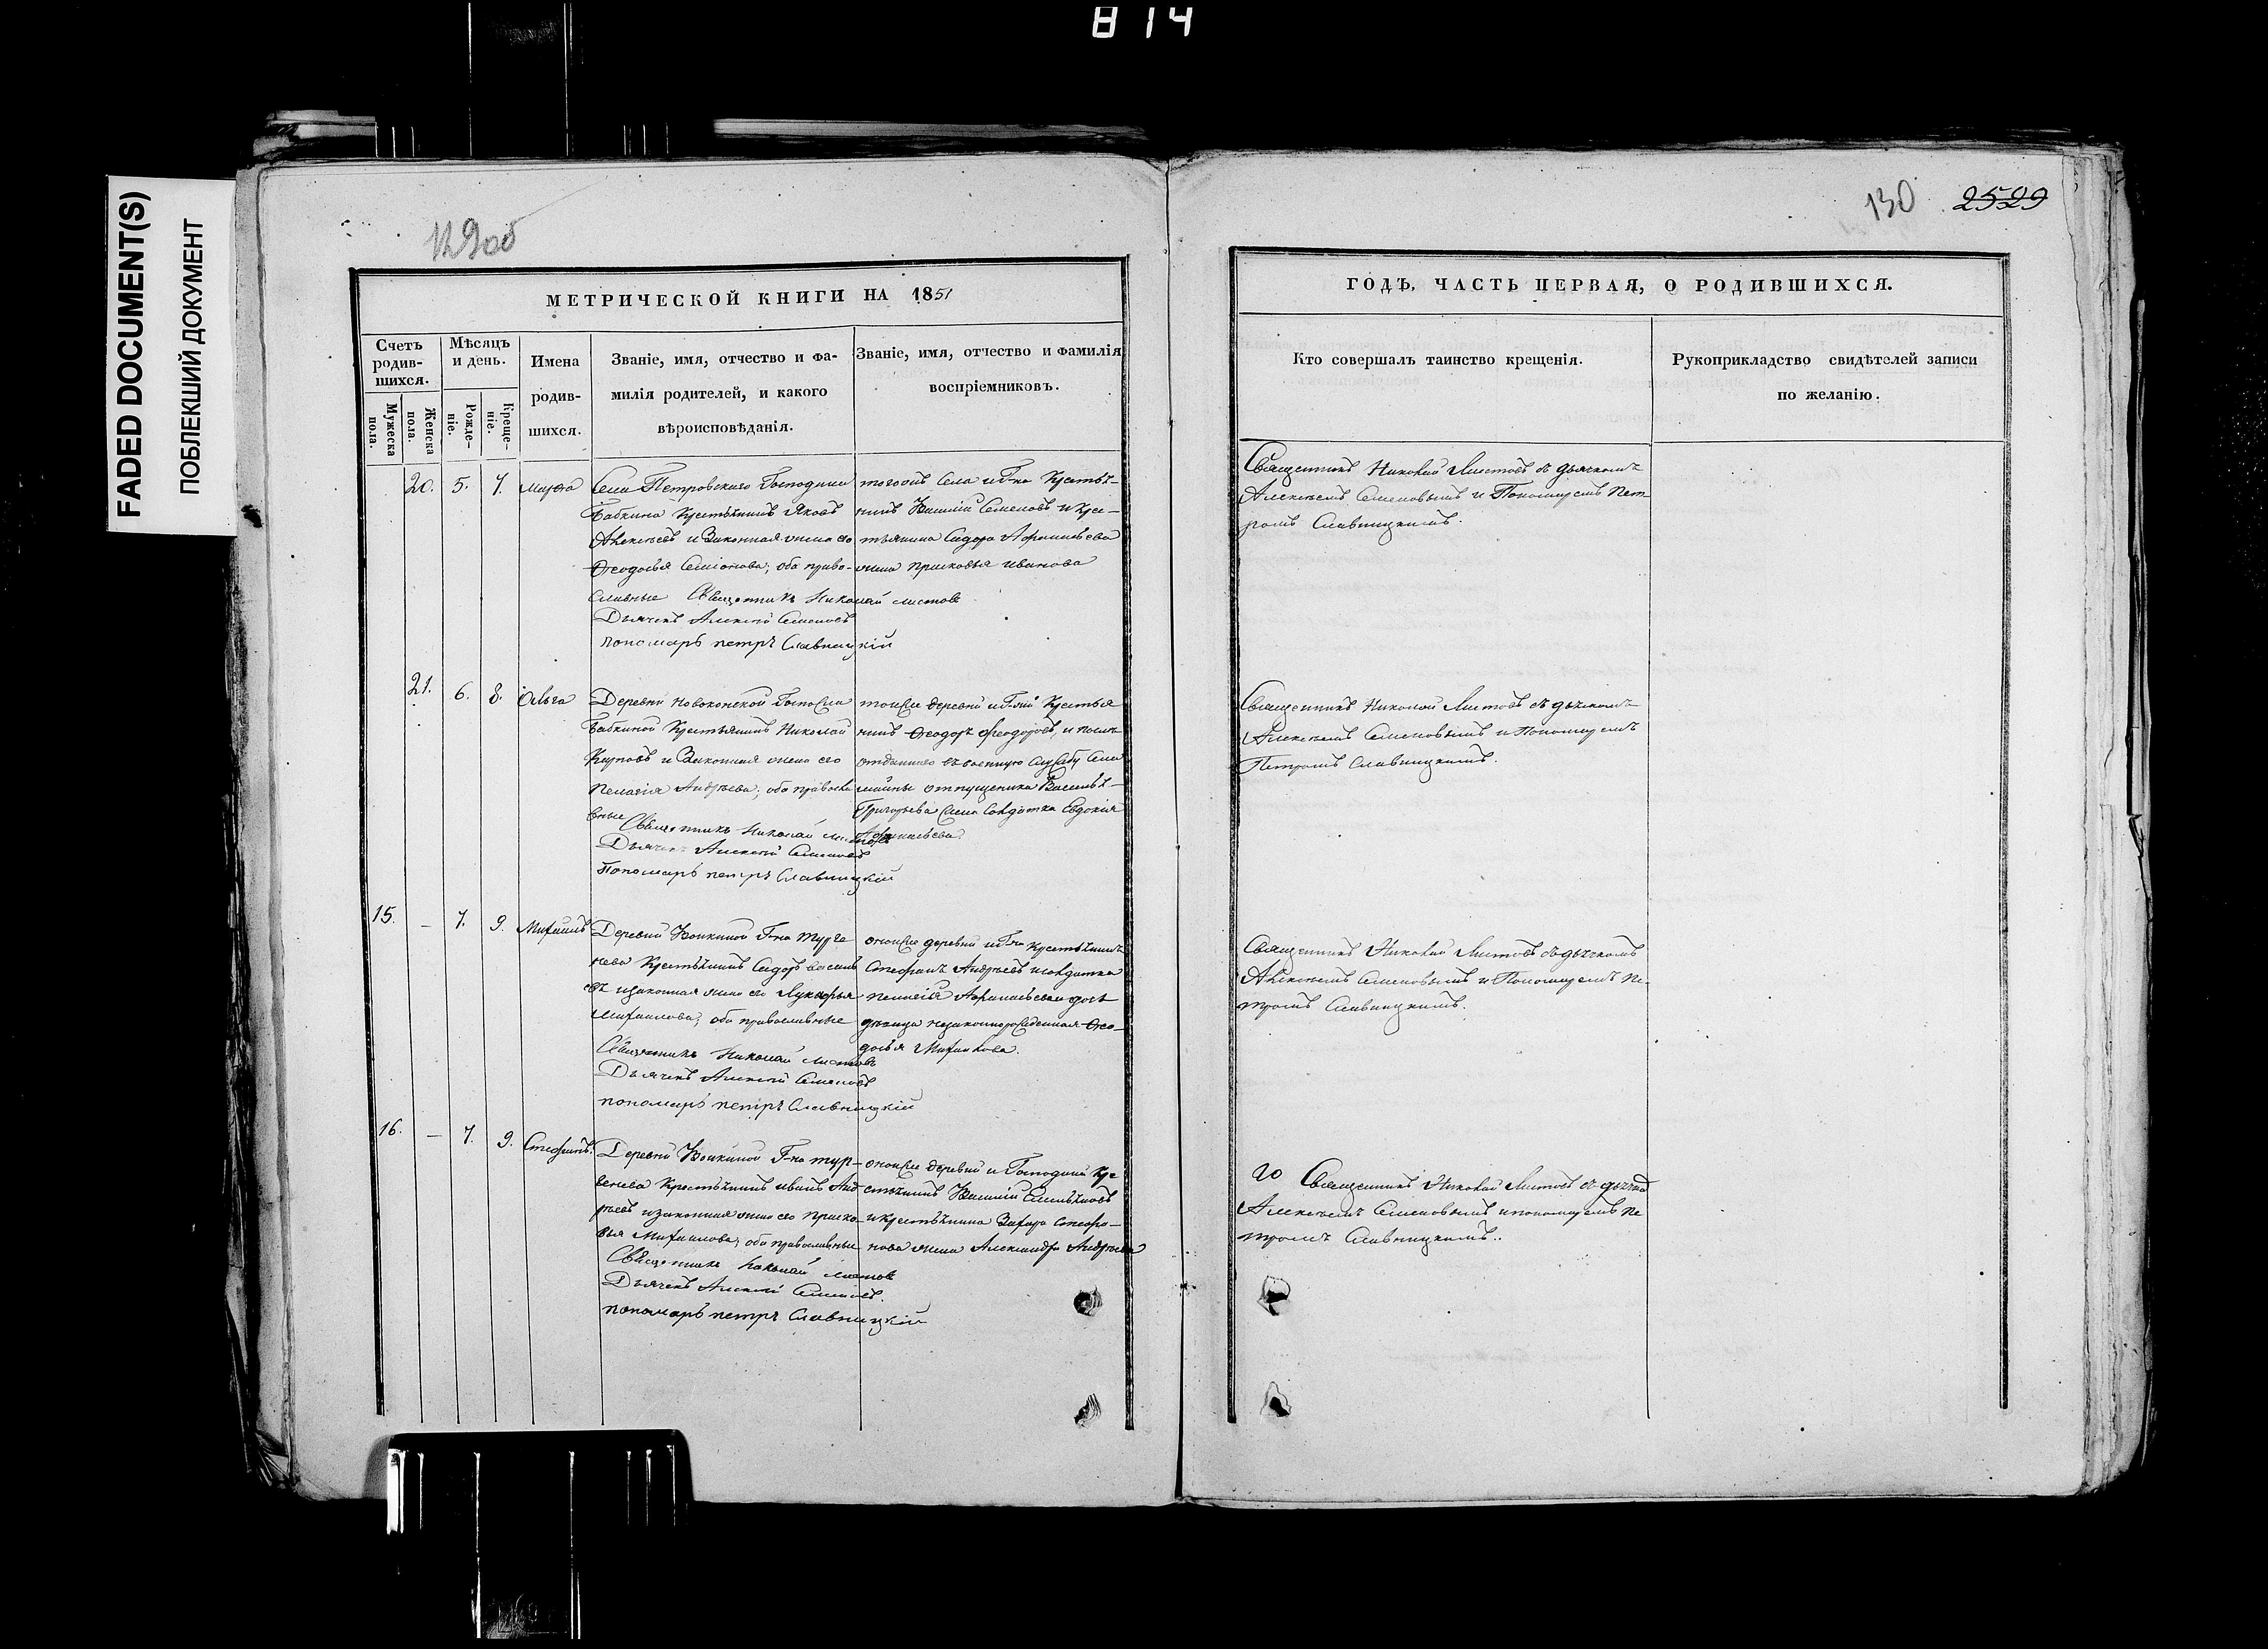 814
FADED DOCUMENT(S)
ПОБЛЕКШИЙ ДОКУМЕНТ
129об
130 2529
МЕТРИЧЕСКОЙ КНИГИ НА 1851
Счетъ родив-шихся.
Мужеска пола.
Женска пола.
Мѣсяцъ и день.
Рожде-ніе.
Креще-ніе.
Имена родив-шихся.
Званіе, имя, отчество и фа-
милія родителей, и какого
вѣроисповѣданія.
Званіе, имя, отчество и фамилія
воспріемниковъ.
20. 5. 7. Марѳа
Села Петровскаго Господина
Бабкина Крестьянинъ Яковъ
Алексѣевъ и Законная жена его
Ѳеодосья Семіонова; оба право-
славные Священникъ Николай Листовъ
Дьячекъ Алексѣй Семеновъ
пономарь петръ Славницкій
тогожъ Села и Г-на Крестья-
нинъ Василій Семеновъ и кре-
стьянина Сидора Афонасьева
жена прасковья иванова
21. 6. 8. Ольга
Деревни Госпожи
Бабкиной Крестьянинъ Николай
Карповъ и Законная жена его
Пелагія Андреева; оба правосла
вные Священникъ Николай Листовъ
Дьячекъ Алексѣй Семеновъ
Пономарь петръ Славницкій
тоейже деревни и Г-жи Крестья
нинъ Ѳеодоръ Ѳеодоровъ, и
отданнаго въ военную службу
отпущеника Василья
Григорьева жена Солдатка Евдокія
Афонасьева
15. – 7. 9. Михаилъ
Деревни Г-на Турге
нева Крестьянинъ Сидоръ василь
евъ изаконная жена его Лукерья
Михаилова; оба православные
Священникъ Николай Листовъ
Дьячекъ Алексѣй Семеновъ
пономарь петръ Славницкій
онойже деревни и Г-на крестьянинъ
Стефанъ Андреевъ исолдатки
пелагіи Афонасьевой дочь
дѣвица незаконнорожденная Ѳео-
досья Михаилова.
16. – 7. 9. Стефанъ.
Деревни Г-на тур-
генева Крестьянинъ иванъ Анд
реевъ изаконная жена его праско-
вья Михаилова; оба православные
Священникъ Николай Листовъ
Дьячекъ Алексѣй Семеновъ.
пономарь петръ Славницкій
онойже деревни и Господина Кре
стьянинъ Василій
икрестьянина Захара Стефа-
нова жена Александра Андреева
ГОДЪ, ЧАСТЬ ПЕРВАЯ, О РОДИВШИХСЯ.
Кто совершалъ таинство крещенія.
Рукоприкладство свидѣтелей записи
по желанію.
Священникъ Николай Листовъ съ дьячкомъ
Алексѣемъ Семеновымъ и Пономаремъ Пет
ромъ Славницкимъ.
Священникъ Николай Листовъ съ дьячкомъ
Алексѣемъ Семеновымъ и Пономаремъ
Петромъ Славницкимъ.
Священникъ Николай Листовъ съ дьячкомъ
Алексѣемъ Семеновымъ и Пономаремъ Пе-
тромъ Славницкимъ.
Священникъ Николай Листовъ съ
Алексѣемъ Семеновымъ ипономаремъ Пе
тромъ Славницкимъ.